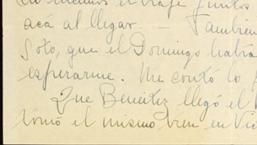 el viaje juntos
acá al llegar — También
Soto, que el Domingo había
esperarme. Me contó lo
Que Benítez llegó el
tomó el mismo tren en Vic